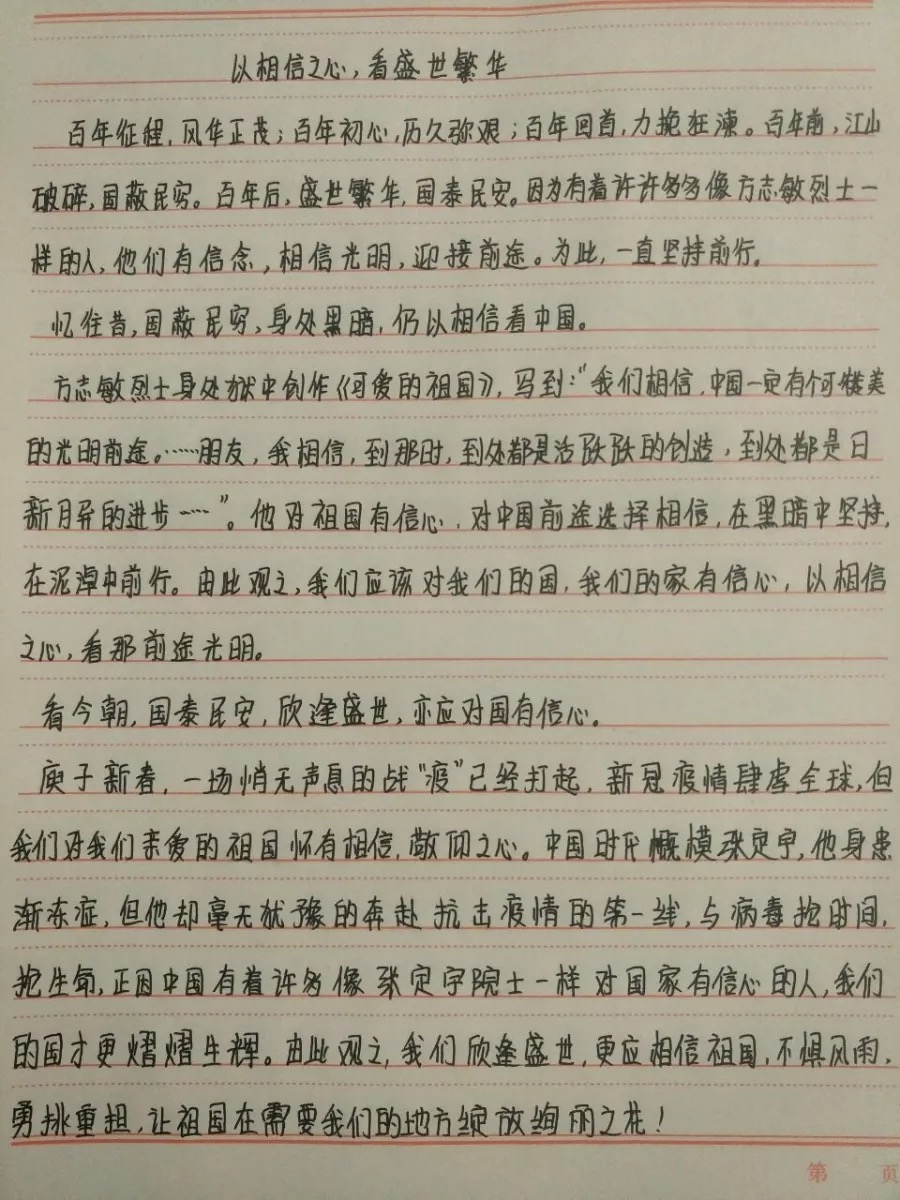 以相信之心，看盛世繁华
百年征程，风华正茂；百年初心，历久弥艰；百年回首，力挽狂澜。百年前，江山
破碎，国蔽民穷。百年后，盛世繁华，国泰民安。因为有着许许多多像方志敏烈士一
样的人，他们有信念，相信光明，迎接前途。为此，一直坚持前行。
忆往昔，国蔽民穷，身处黑暗，仍以相信看中国。
方志敏烈士身处狱中创作《可爱的祖国》，写到：“我们相信，中国一定有个可赞美
的光明前途。……朋友，我相信，到那时，到处都是活跃跃的创造，到处都是日
新月异的进步……”。他对祖国有信心，对中国前途选择相信，在黑暗中坚持，
在泥淖中前行。由此观之，我们应该对我们的国，我们的家有信心，以相信
之心，看那前途光明。
看今朝，国泰民安，欣逢盛世，亦应对国有信心。
庚子新春，一场悄无声息的战“疫”已经打起，新冠疫情肆虐全球，但
我们对我们亲爱的祖国怀有相信，敬仰之心。中国时代楷模张定宇，他身患
渐冻症，但他却毫无犹豫的奔赴抗击疫情的第一线，与病毒抢时间，
抢生命，正因中国有着许多像张定宇院士一样对国家有信心的人，我们
的国才更熠熠生辉。由此观之，我们欣逢盛世，更应相信祖国，不惧风雨，
勇挑重担，让祖国在需要我们的地方绽放绚丽之花！
第 页